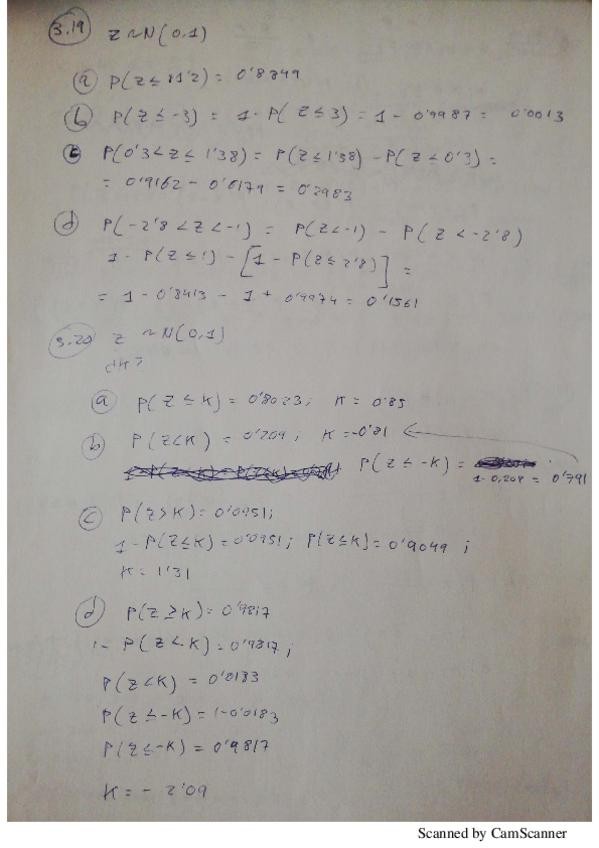 3.19 Z ~ N(0,1)
a P(Z ≤ 1'2) = 0'8849
b P(Z ≤ -3) = 1 - P(Z ≤ 3) = 1 - 0'9987 = 0'0013
c P(0'3 < Z ≤ 1'38) = P(Z ≤ 1'38) - P(Z < 0'3) =
= 0'9162 - 0'6179 = 0'2983
d P(-2'8 < Z < -1) = P(Z < -1) - P(Z < -2'8)
1 - P(Z ≤ 1) - [1 - P(Z ≤ 2'8)] =
= 1 - 0'8413 - 1 + 0'9974 = 0'1561
3.20 Z ~ N(0,1)
¿K?
a P(Z ≤ K) = 0'8023; K = 0'85
b P(Z < K) = 0'209; K = -0'81
P(Z ≤ -K) =
1 - 0,209 = 0'791
c P(Z > K) = 0'0951;
1 - P(Z ≤ K) = 0'0951; P(Z ≤ K) = 0'9049;
K = 1'31
d P(Z ≥ K) = 0'9817
1 - P(Z < K) = 0'9817;
P(Z < K) = 0'0183
P(Z ≤ -K) = 1 - 0'0183
P(Z ≤ -K) = 0'9817
K = - 2'09
Scanned by CamScanner